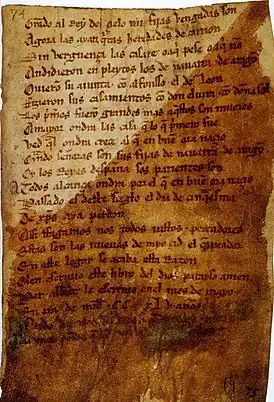 74
Grado al Rey del çielo mis fijas vengadas son
Agora las ayan q̃tas heredades de carrion
Sin verguença las casare o aq̃ pese o aq̃ nõ
Andidieron en pleytos los de nauarra ⁊ de aragõ
Ouierõ su aiunta cõ alfonsso el de leon
Fizieron sus casamientos cõ don eluira ⁊ cõ doña sol
Los p̃mos fuerõ grandes mas aq̃stos son miiores
A mayor ondra las casa q̃ lo q̃ p̃mero fue
Ved q̃l ondra creçe al q̃ en buẽ ora naçio
Quãdo señoras son sus fijas de nauarra ⁊ de aragõ
Oy los Reyes despaña sos parientes son
A Todos alcança ondra por el q̃ en buẽ ora naçio
Passado es deste sieglo el dia de cinq̃esma
De xp̃s aya perdõ
Assi ffagamos nos todos iustos ⁊ peccadores
Estas son las nueuas de myo çid el cãpeador
En este logar se acaba esta Razon
Quien escriuio este libro del dios parayso amen
Per abbat le escriuio en el mes de mayo
En era de mill ⁊ CC XLV años